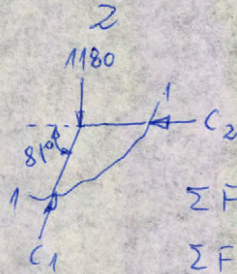 2
1180
1
C2
81°
1
C1
Σ F
Σ F